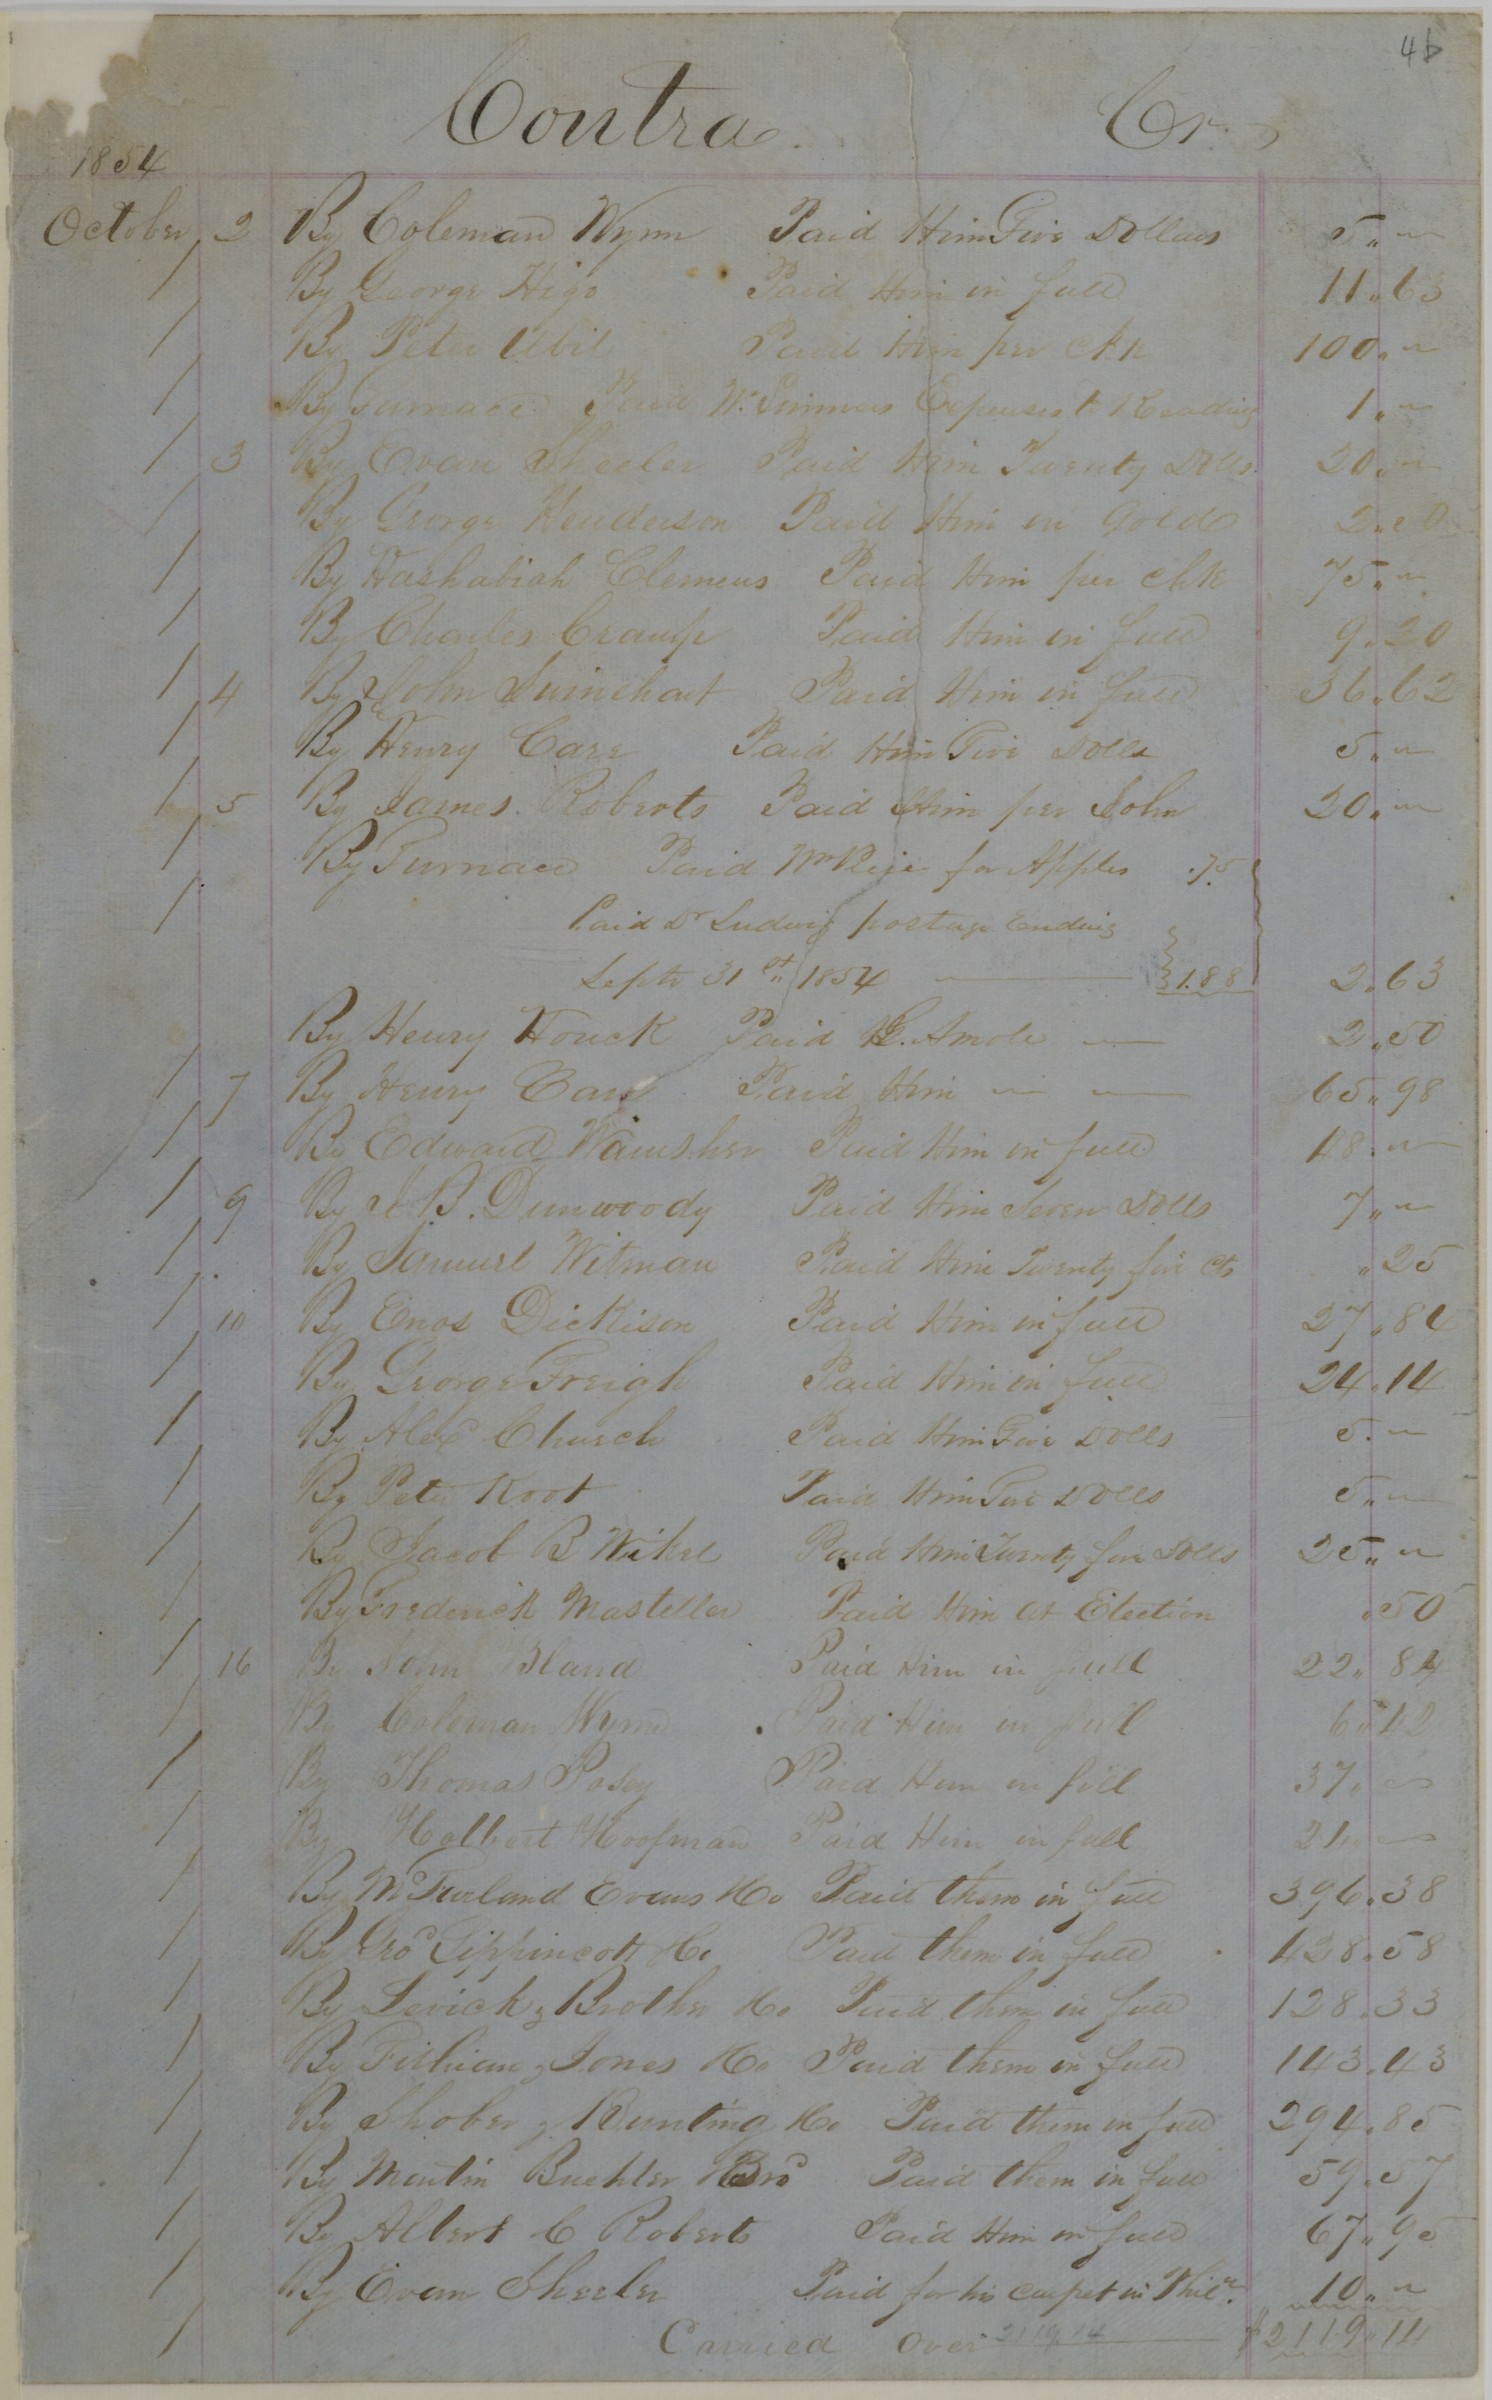 4b
Contra Cr.
1854
October 2 By Coleman Wynn Paid Him Five Dollars 5 " ~
By George Higo Paid Him in full 11 " 63
By Peter Ubil Paid Him per Chk 100 " ~
By Furnace Paid W. Simmers Expenses to Reading 1 " ~
3 By Evan Sheeler Paid Him Twenty Dolls 20 " ~
By George Henderson Paid Him in Gold 2 " 50
By Hashabiah Clemens Paid Him per Chk 75 " ~
By Charles Paid Him in full 9 " 20
4 By John Swinehart Paid Him in full 36 " 62
By Henry Care Paid Him Five Dolls 5 " ~
5 By James Roberts Paid Him per John 20 " ~
By Furnace Paid Wm for Apples .75
Paid Dr Ludwig postage Ending
Septr 31st 1854 — 1.88 2 " 63
By Henry Houck Paid G. Amole — 2 " 50
7 By Henry Care Paid Him — — 65 " 98
By Edward Wamsher Paid Him in full 18 " ~
9 By J B. Dunwoody Paid Him Seven Dolls 7 " ~
By Samuel Witman Paid Him Twenty five cts " 25
10 By Enos Dickison Paid Him in full 27 " 84
By George Freigh Paid Him in full 24 " 14
By Alex Church Paid Him Five Dolls 5 " ~
By Peter Root Paid Him Five Dolls 5 " ~
By Jacob B Wikel Paid Him Twenty five Dolls 25 " ~
By Frederick Masteller Paid Him at Election " 50
16 By John Bland Paid Him in full 22 " 84
By Coleman Wynn Paid Him in full 6 " 12
By Thomas Posey Paid Him in full 37 " ~
By Holbert Hoofman Paid Him in full 21 " ~
By McFarland Evans & Co Paid them in full 396 " 38
By Geo Lippincott & Co Paid them in full 428 " 58
By Levick & Brother & Co Paid them in full 128 " 33
By Fithian & Jones & Co Paid them in full 143 " 43
By Shober & Bunting & Co Paid them in full 294 " 85
By Martin Buehler & Bro Paid them in full 59 " 57
By Albert C Roberts Paid Him in full 67 " 95
By Evan Sheeler Paid for his carpet in Phila. 10 " ~
Carried Over 2119.14 $2119 " 14